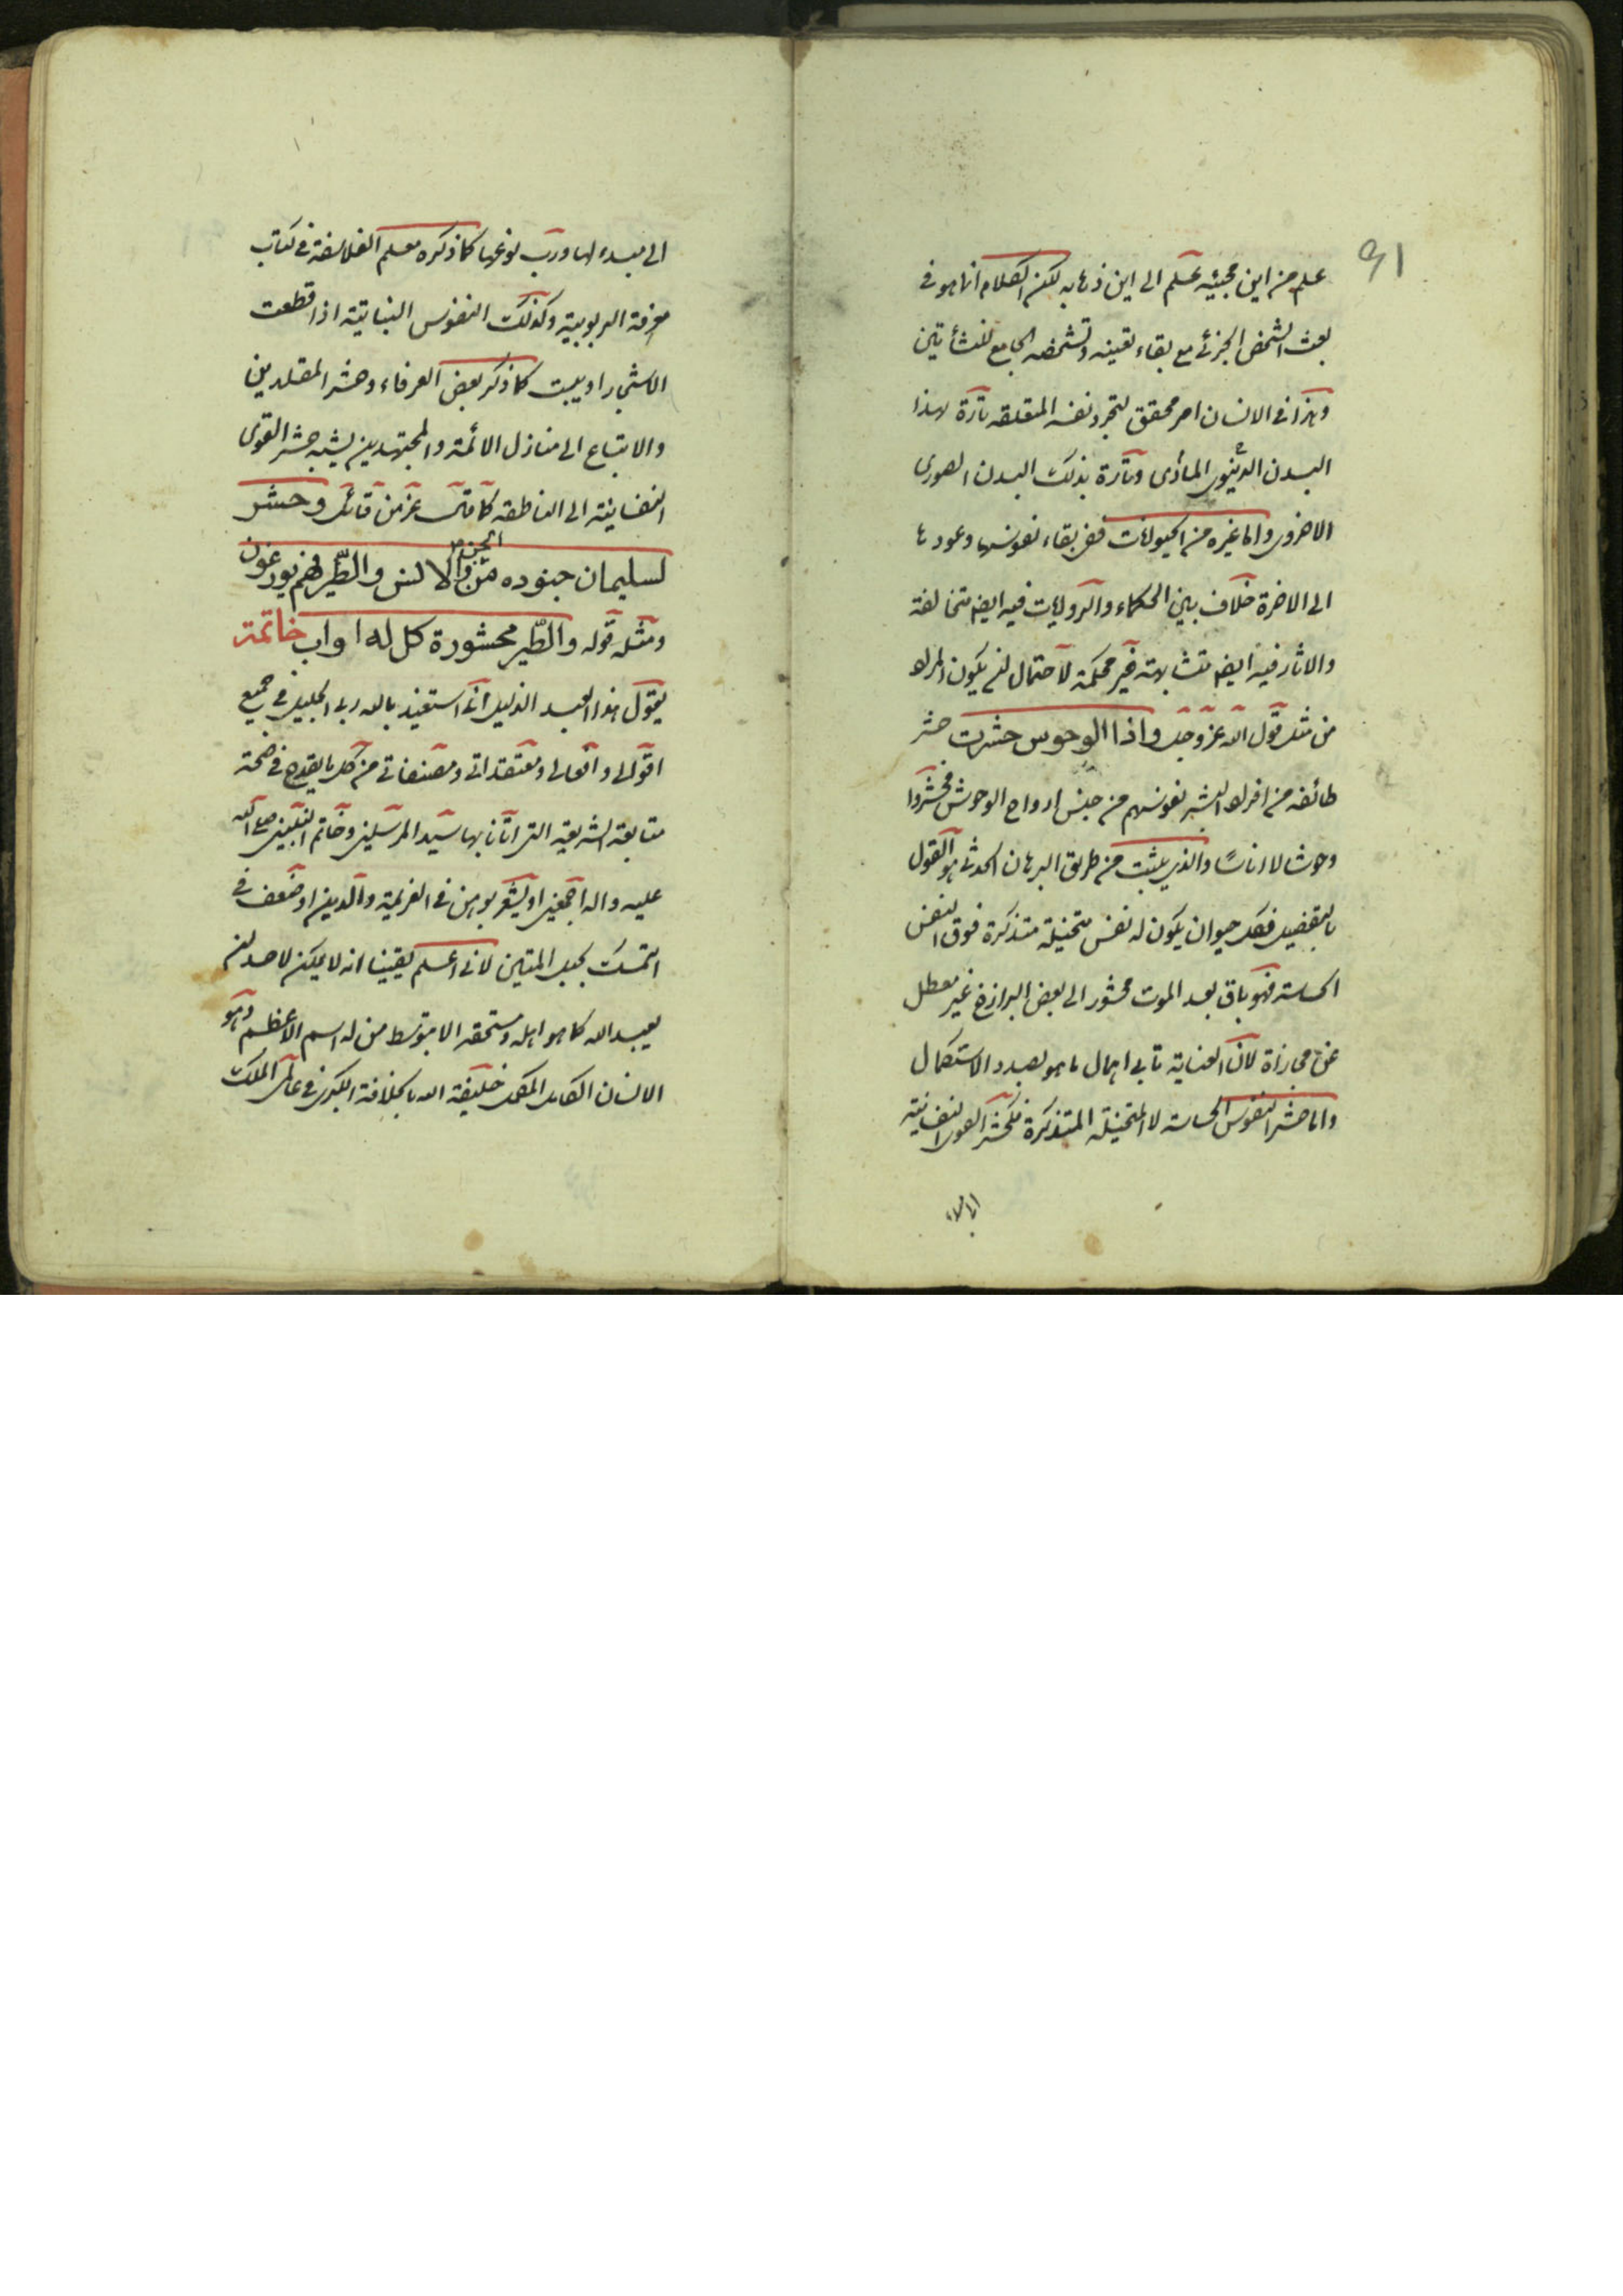 91
علم من اين مجيئه علم الى اين ذهابه لكن الكلام انما هو فى
بعث الشخص الجزئى مع بقاء تعينه وتشخصه الجامع للنشأتين
وهذا فى الانسان امر محقق لتجرد نفسه المتعلقه تارة لهذا
البدن الدنيوى المادى وتارة بذلك البدن الصورى
الاخروى واما غيره من الحيوانات ففى بقاء نفوسها وعودها
الى الاخرة خلاف بين الحكماء والروايات فيه ايضا متخالفة
والاثار فيه ايضا متشابهة غير محكمة لاحتمال ان يكون المراد
من مثل قول الله عز وجل واذا الوحوس حشرت حشر
طائفه من افراد البشر نفوسهم من جنس ارواح الوحوش فحشروا
وحوشا لا اناسًا والذى يثبت من طريق البرهان الحدثى هو القول
بالتفصيل فكل حيوان يكون له نفس متخيلة متذكرة فوق النفس
الحساسة فهو باق بعد الموت محشور الى بعض البرازخ غير معطل
عن مجازاة لان العناية تابى اهمال ما هو بصدد الاستكمال
واما حشر النفوس الحساسة لا المتخيلة المتذكرة فكحشر القوى النفسانية
الى مبدء لها ورب نوعها كما ذكره معلم الفلاسفة فى كتاب
معرفة الربوبية وكذلك النفوس النباتية اذا قطعت
الاشجار او يبست كما ذكر بعض العرفاء وحشر المقلدين
والاتباع الى منازل الائمة والمجتهدين يشبه حشر القوى
النفسانية الى الناطقه كما قال عز من قائل وحشر
لسليمان جنوده من الجن والانس والطّير فهم يوزعون
ومثله قوله والطّير محشورة كل له اواب خاتمة
يقول هذا العبد الذليل انى استعيذ بالله ربى الجليل فى جميع
اقوالى وافعالى ومعتقداتى ومصنفاتى من كل ما يقدح فى صحة
متابعة الشريعة التى اتانا بها سيد المرسلين وخاتم النبيين صلى الله
عليه واله اجمعين او يشعر بوهن فى العزيمة والدين او ضعف فى
التمسك بحبل المتين لانى اعلم يقينا انه لا يمكن لاحد ان
يعبد الله كما هو اهله ومستحقه الا بتوسط من له اسم الاعظم وهو
الانسان الكامل المكمل خليفة الله بالخلافة الكبرى فى عالمى الملك